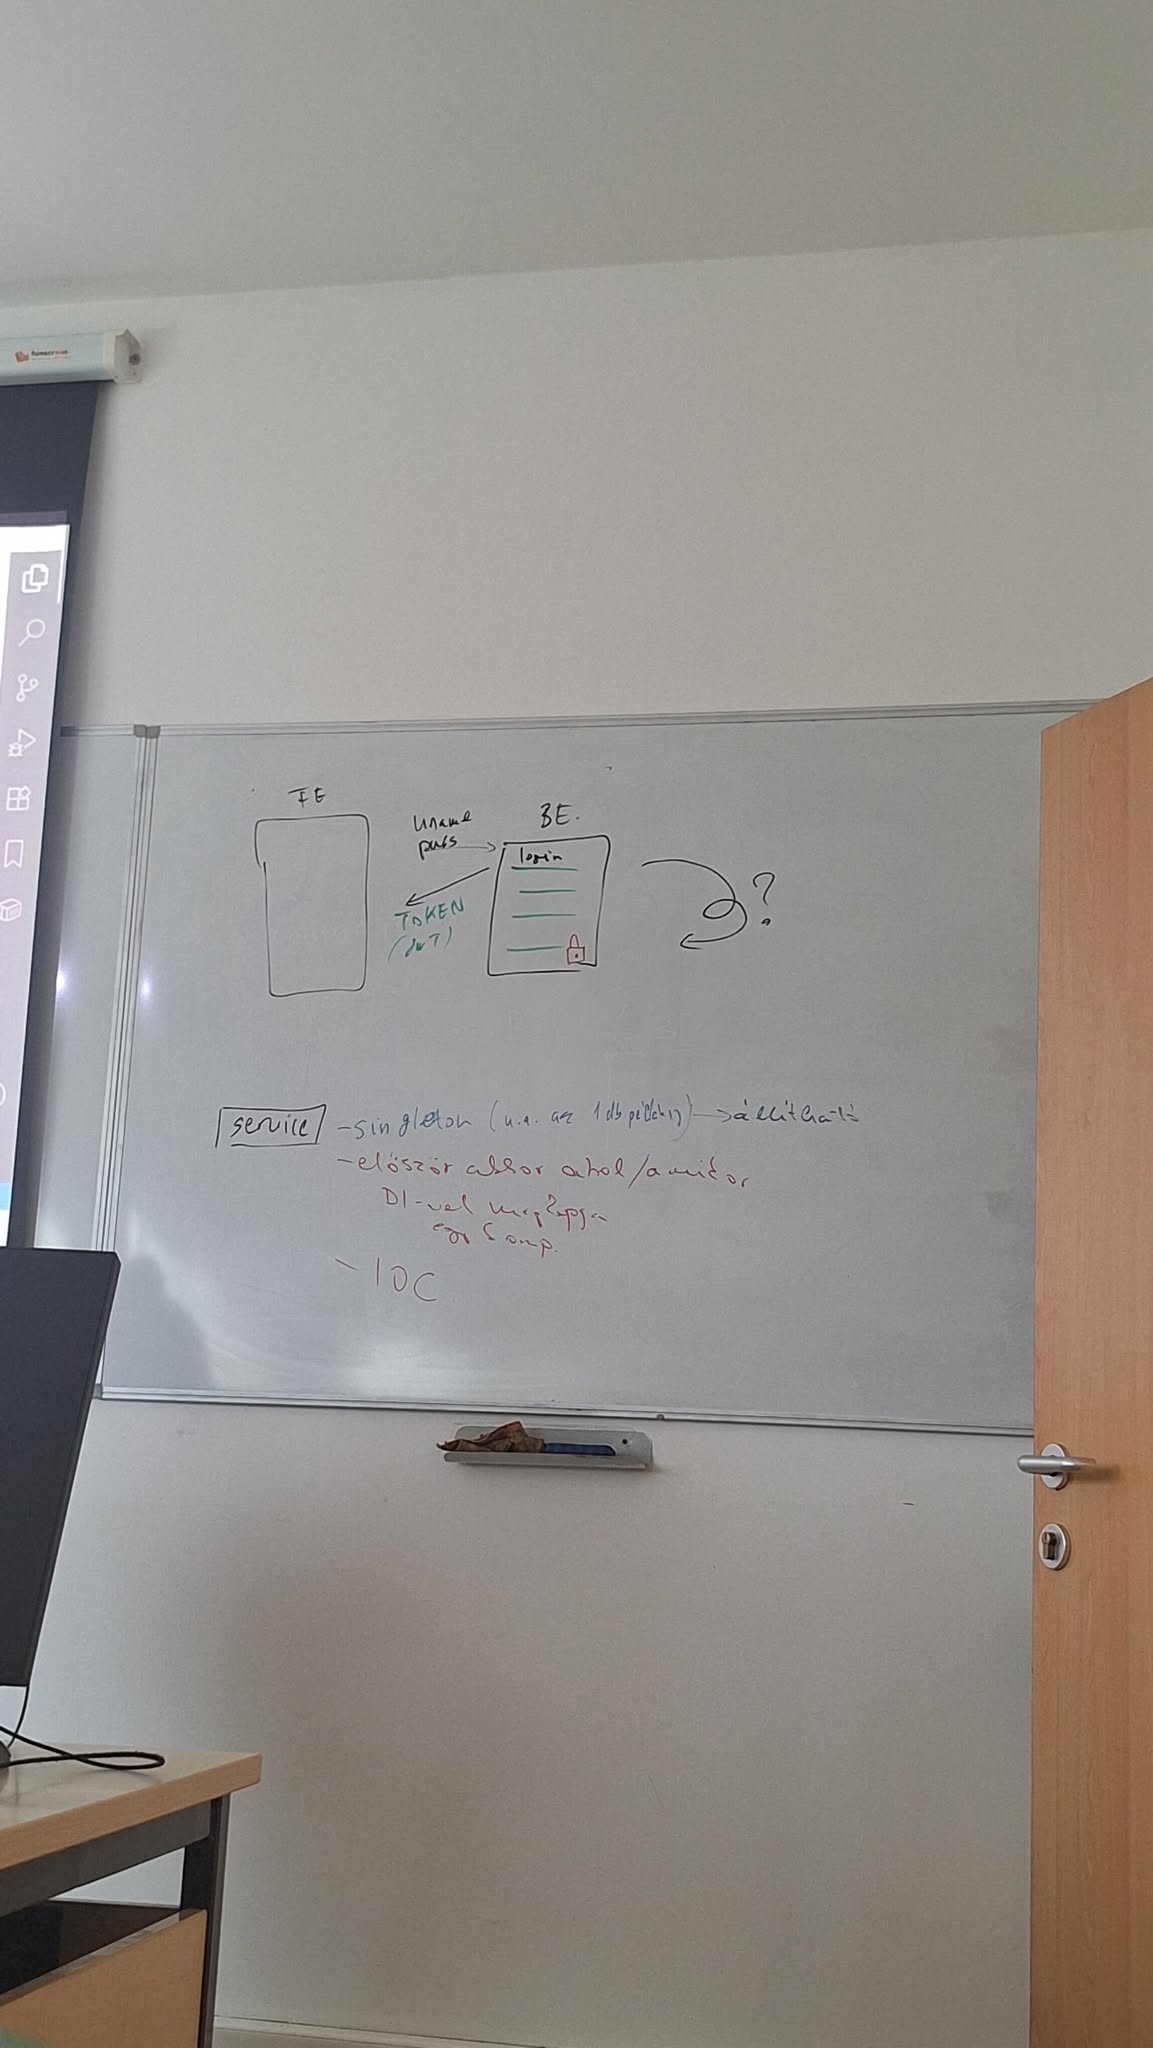 FE
BE.
uname
pass
login
TOKEN
(JWT)
?
service
-singleton (u.a. az 1 db példány) → állítható
-először akkor ahol/amikor
DI-vel
egy komp.
- IOC